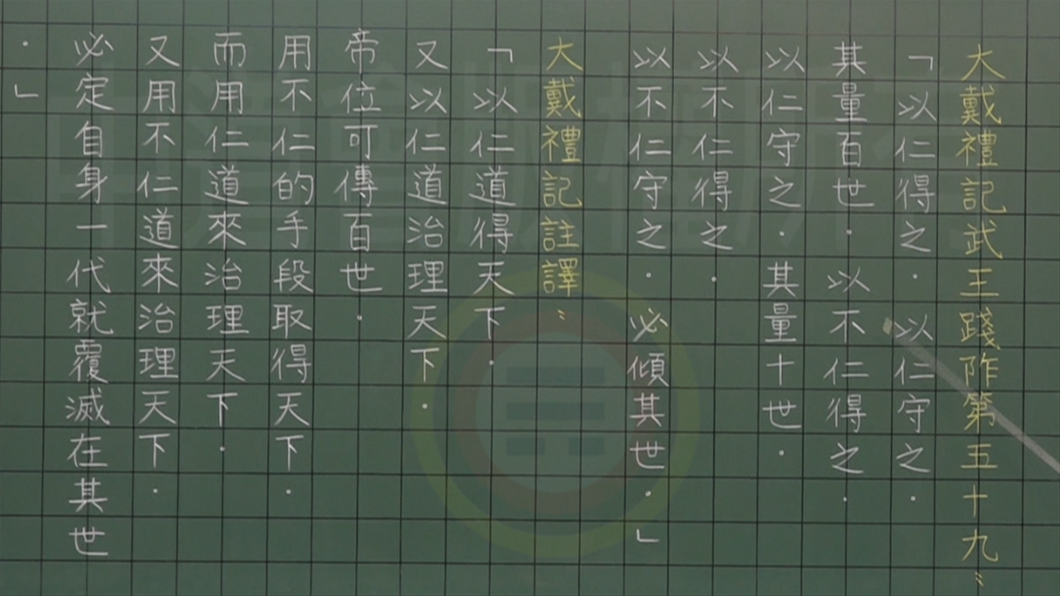 大戴禮記武王踐阼第五十九：
「以仁得之．以仁守之．
其量百世．以不仁得之．
以仁守之．其量十世．
以不仁得之．
以不仁守之．必傾其世．」
大戴禮記註譯：
「以仁道得天下．
又以仁道治理天下．
帝位可傳百世．
用不仁的手段取得天下．
而用仁道來治理天下．
又用不仁道來治理天下．
必定自身一代就覆滅在其世
．」